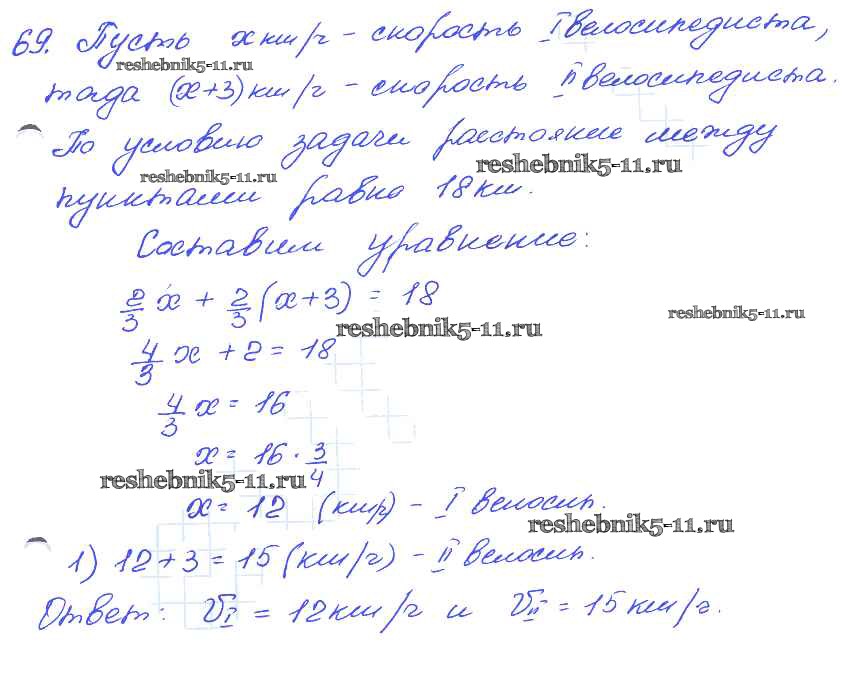 69. Пусть x км/ч - скорость I велосипедиста,
reshebnik5-11.ru
тогда (x+3) км/ч - скорость II велосипедиста.
По условию задачи расстояние между
reshebnik5-11.ru
reshebnik5-11.ru
пунктами равно 18 км.
Составим уравнение:
2/3 x + 2/3 (x+3) = 18
reshebnik5-11.ru
reshebnik5-11.ru
4/3 x + 2 = 18
4/3 x = 16
x = 16 · 3/4
reshebnik5-11.ru
x = 12 (км/ч) - I велосип.
reshebnik5-11.ru
1) 12+3 = 15 (км/ч) - II велосип.
Ответ: V_I = 12 км/ч и V_II = 15 км/ч.